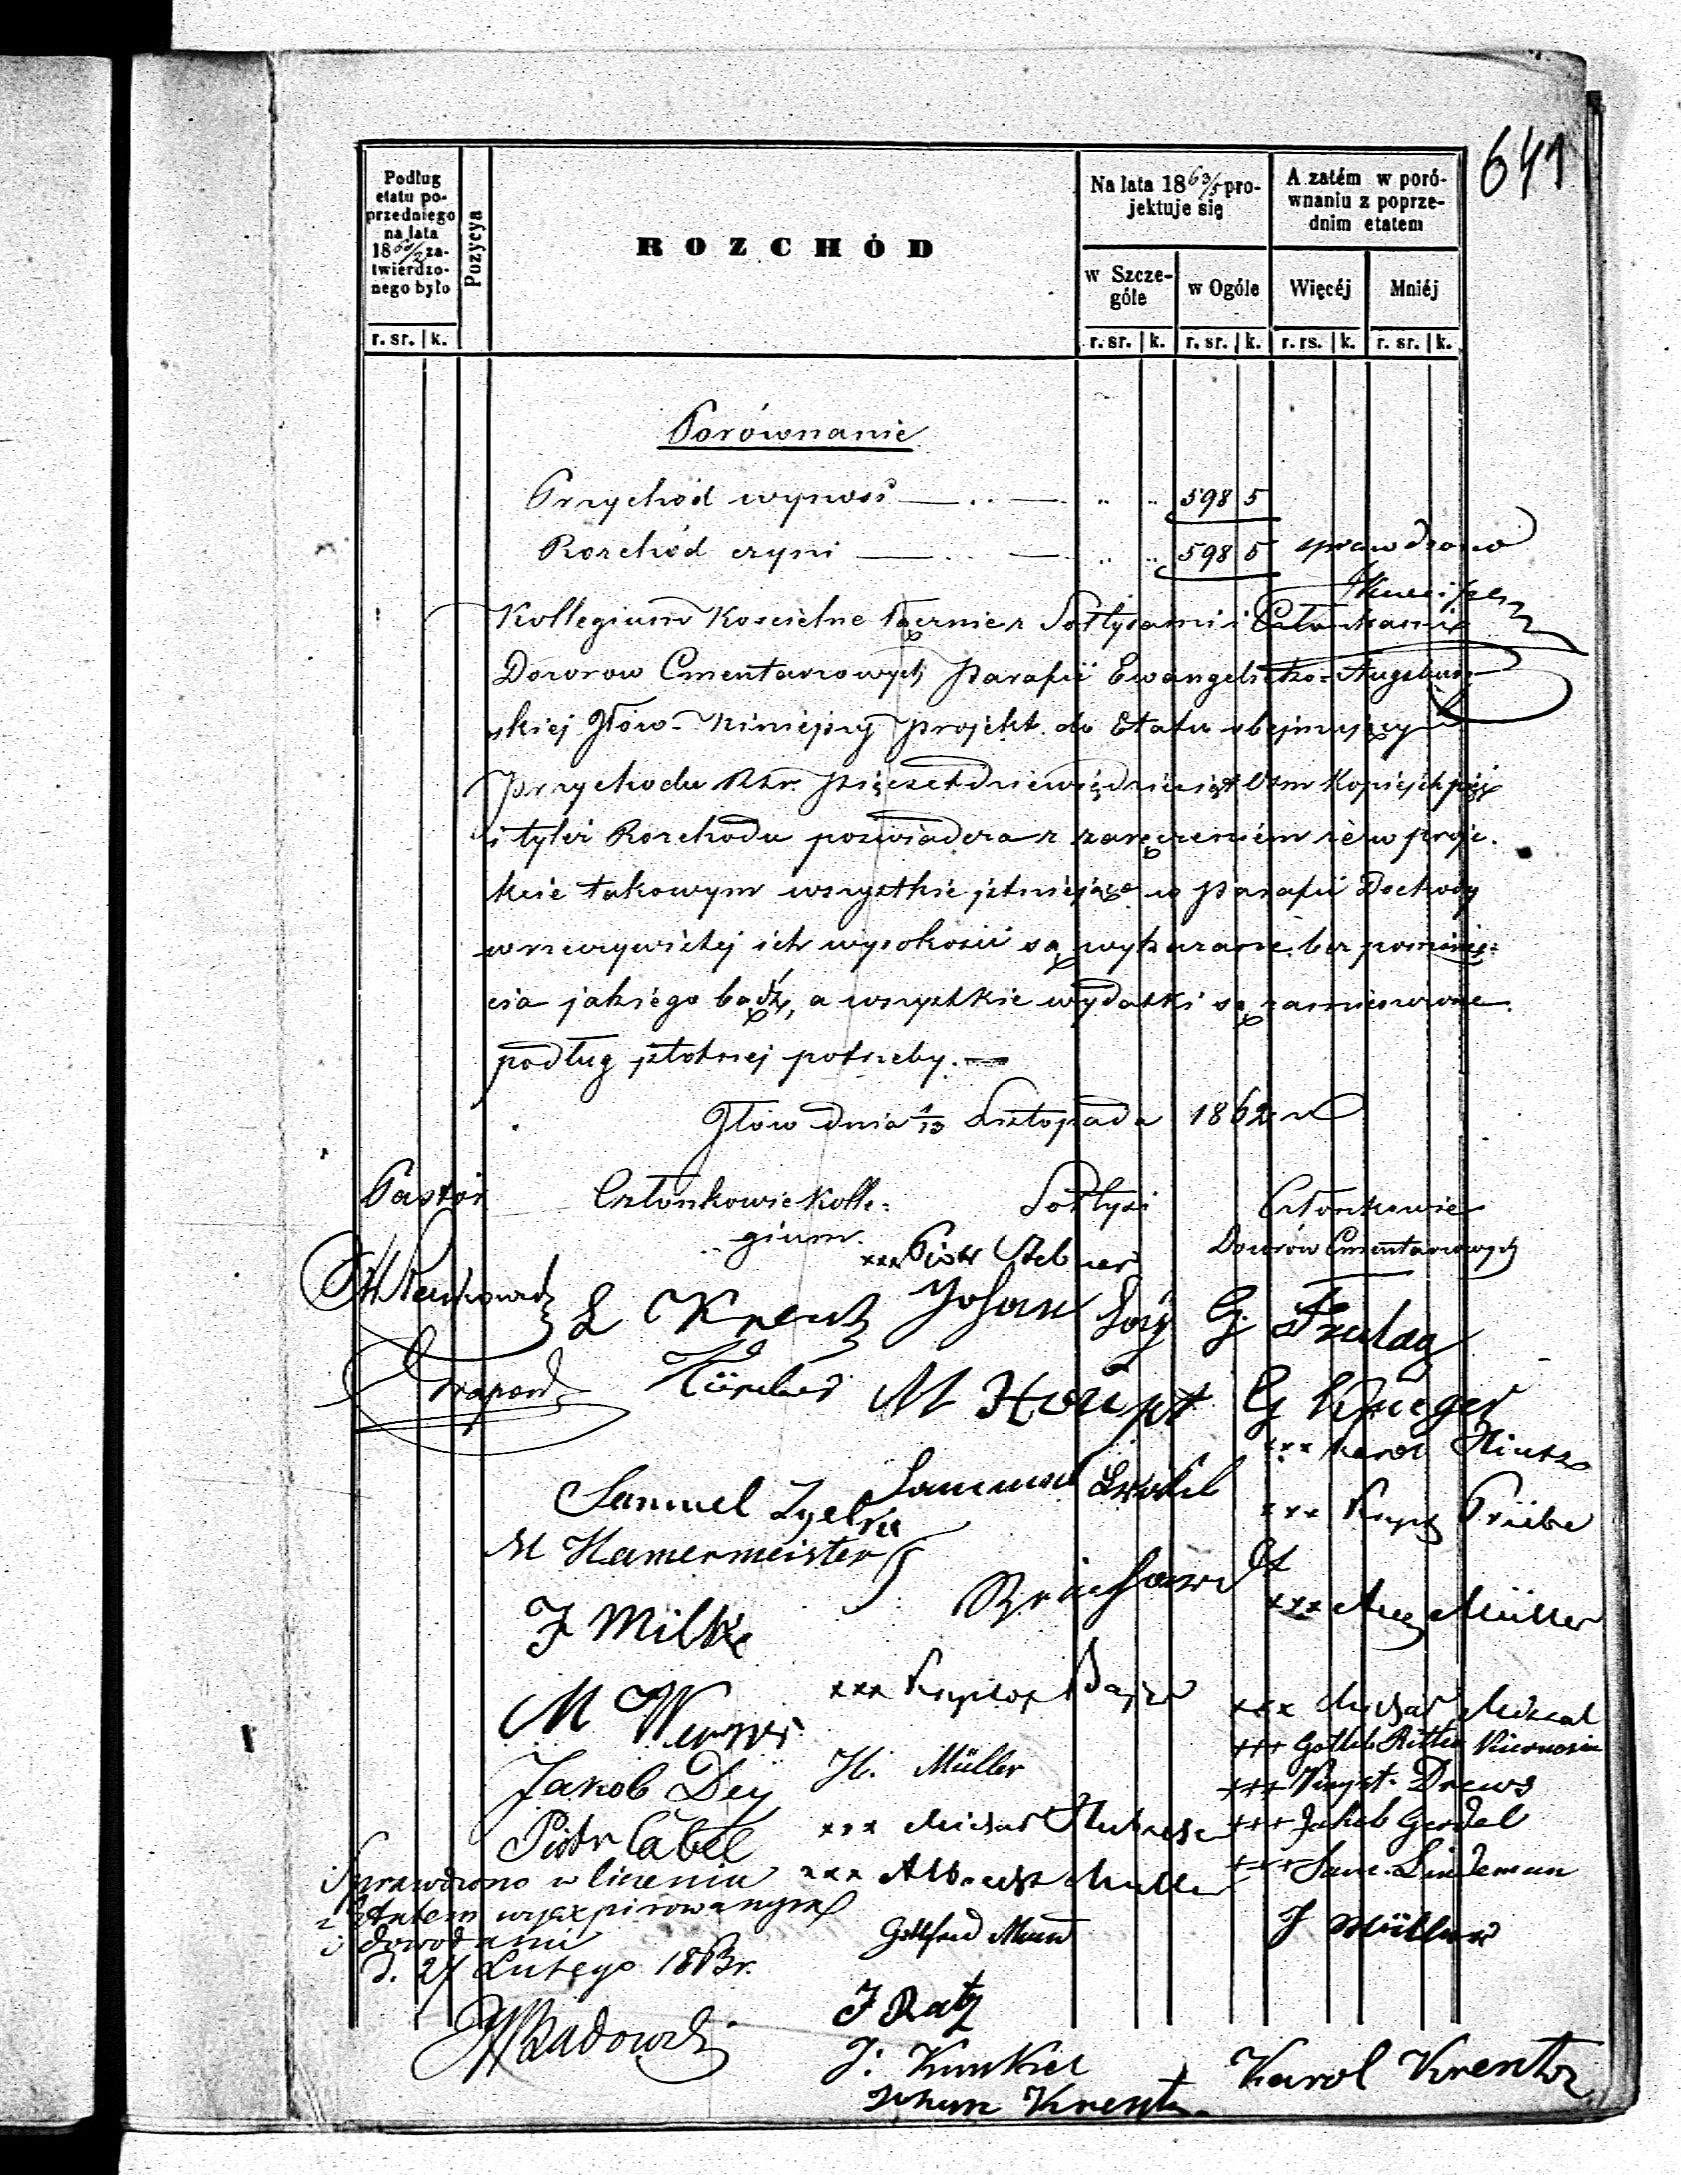 641
Podług etatu poprzedniego na lata 1860/2 zatwierdzonego było
Pozycya
ROZCHÓD
Na lata 1863/5 projektuje się
A zatém w porównaniu z poprzednim etatem
w Szczególe
w Ogóle
Więcéj
Mniéj
r. sr. k.
r. sr. k.
r. sr. k.
r. rs. k.
r. sr. k.
Porównanie
Przychód wynosi — .. — .. .. 598 5
Rozchód czyni — .. — .. .. 598 5
sprawdzono
Kollegium Kościelne łącznie z Sołtysami i Członkami
Dozorow Cmentarzowych Parafii Ewangelicko-Augsbur-
skiej Iłów - Niniejszy projekt do Etatu obejmujący
Przychodu Rsr. pięćset dziewięćdziesiąt Ośm Kopiejek pięć
i tyleż Rozchodu poświadcza z zaręczeniem że w proje-
kcie takowym wszystkie jstniejące w Parafii Dochody
w rzeczywistej ich wysokości są wykazane bez pominię-
cia jakiego bądź, a wszystkie wydatki są zamieszczone
podług jstotnej potrzeby. —
Iłów dnia 1/13 Listopada 1862 r
Pastor
Członkowie Kolle-
gium.
Sołtysi
Członkowie
Dozorów Cmentarzowych
xxx Piotr
L Krentz
Johan
G. Freulag
M Haupt
G Krueger
xxx Karol Hintz
Samuel
Samuel
xxx Krysz Priebe
M Hamermeister
J Milke
xxx Aug Müller
M Werner
xxx Krysztof
xxx Michał
Jakob Dey
H. Müller
xxx Gottlib Ritter
xxx Kryst. Drews
Piotr Cabel
xxx Michał
xxx Jakób
xxx Albrecht Muller
xxx Sam. Lindeman
Sprawdzono w liczeniu
z Etatem wyexpirowanym
i dowodami
d. 27 Lutego 1863 r.
Gottfried
J Müller
J Ratz
J. Kunkel
Karol Krentz
Johan Krentz